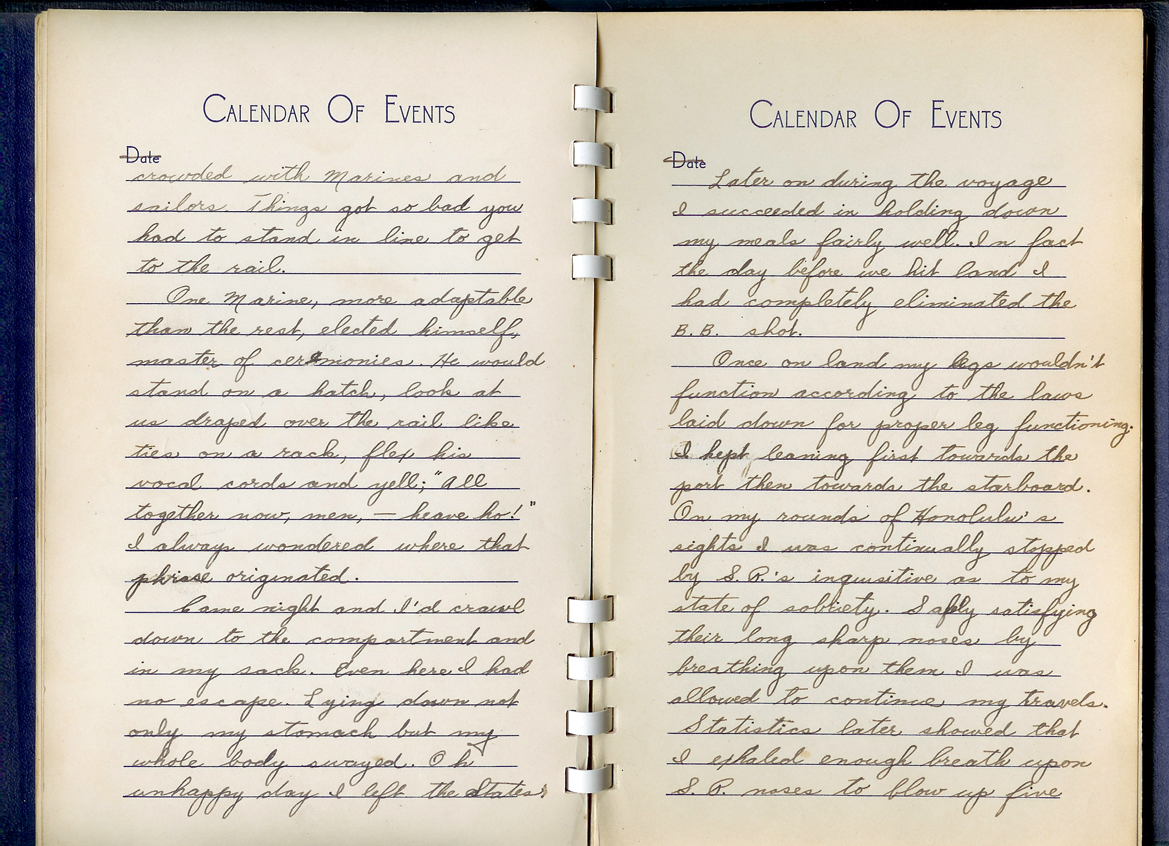 CALENDAR OF EVENTS
Date
crowded with Marines and
sailors. Things got so bad you
had to stand in line to get
to the rail.
One Marine, more adaptable
than the rest, elected himself,
master of ceremonies. He would
stand on a hatch, look at
us draped over the rail like
ties on a rack, flex his
vocal cords and yell; "All
together now, men, — heave ho!"
I always wondered where that
phrase originated.
Came night and I'd crawl
down to the compartment and
in my sack. Even here I had
no escape. Lying down not
only my stomach but my
whole body swayed. Oh
unhappy day I left the States.
CALENDAR OF EVENTS
Date
Later on during the voyage
I succeeded in holding down
my meals fairly well. In fact
the day before we hit land I
had completely eliminated the
B.B. shot.
Once on land my legs wouldn't
function according to the laws
laid down for proper leg functioning.
I kept leaning first towards the
port then towards the starboard.
On my rounds of Honolulu's
sights I was continually stopped
by S.P.'s inquisitive as to my
state of sobriety. Safely satisfying
their long sharp noses by
breathing upon them I was
allowed to continue my travels.
Statistics later showed that
I exhaled enough breath upon
S.P. noses to blow up five